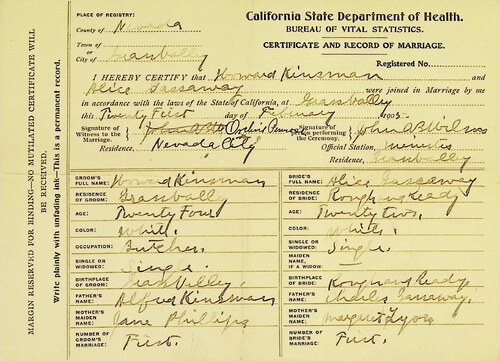 PLACE OF REGISTRY:
County of Nevada
Town of
or
City of Grass Valley
California State Department of Health.
BUREAU OF VITAL STATISTICS.
CERTIFICATE AND RECORD OF MARRIAGE.
Registered No.
I HEREBY CERTIFY that Howard Kinsman and
Alice Gassaway were joined in Marriage by me
in accordance with the laws of the State of California, at Grass Valley
this Twenty First day of February 190
Signature of Witness to the Marriage
Residence, Nevada City
Signature of Person performing the Ceremony. John B Wilson
Official Station, Minister
Residence, Grass Valley
GROOM'S FULL NAME: Howard Kinsman
RESIDENCE OF GROOM: Grass Valley
AGE: Twenty Four
COLOR: White.
OCCUPATION: Butcher.
SINGLE OR WIDOWED: Single.
BIRTHPLACE OF GROOM: Grass Valley.
FATHER'S NAME: Alfred Kinsman
MOTHER'S MAIDEN NAME: Jane Phillips
NUMBER OF GROOM'S MARRIAGE: First.
BRIDE'S FULL NAME: Alice Gassaway
RESIDENCE OF BRIDE: Rough and Ready
AGE: Twenty two.
COLOR: White.
SINGLE OR WIDOWED: Single.
MAIDEN NAME, IF A WIDOW:
BIRTHPLACE OF BRIDE: Rough and Ready.
FATHER'S NAME: Charles Gassaway.
MOTHER'S MAIDEN NAME: Margaret Lyons
NUMBER OF BRIDE'S MARRIAGE: First.
MARGIN RESERVED FOR BINDING—NO MUTILATED CERTIFICATE WILL BE RECEIVED.
Write plainly with unfading ink—This is a permanent record.